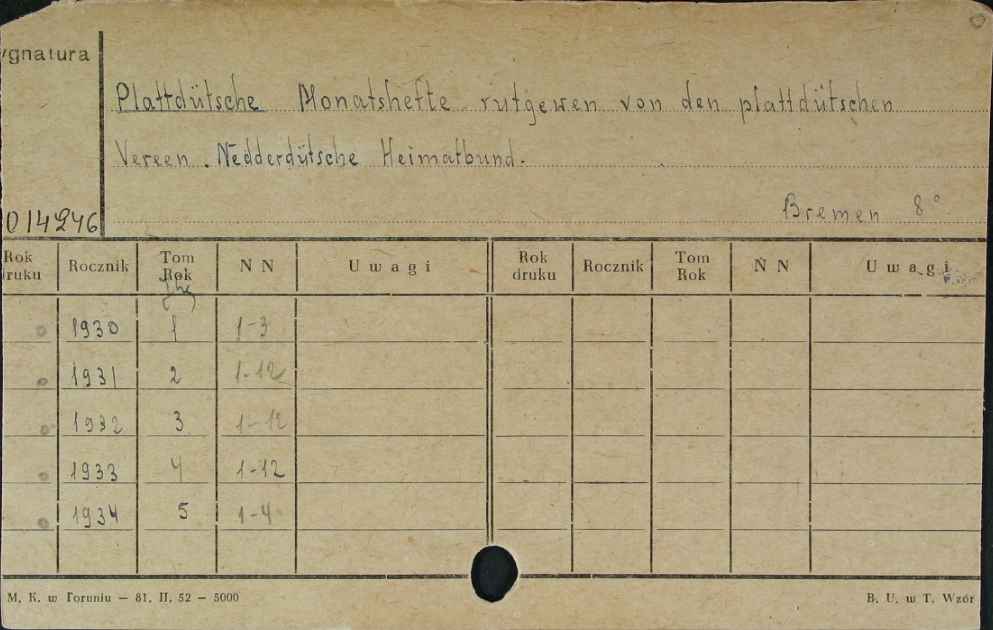 ygnatura
Plattdütsche Monatshefte rutgewen von den plattdütschen
Vereen. Nedderdütsche Heimatbund.
014246 Bremen 8°
Rok druku Rocznik Tom Rok N N Uwagi Rok druku Rocznik Tom Rok N N Uwagi
1930 1 1-3
1931 2 1-12
1932 3 1-12
1933 4 1-12
1934 5 1-4
M. K. w Toruniu — 81. II. 52 — 5000 B. U. w T. Wzór